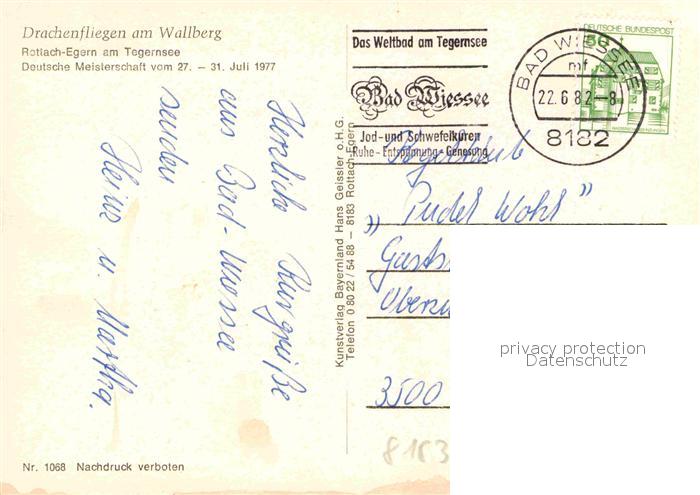 Drachenfliegen am Wallberg
Rottach-Egern am Tegernsee
Deutsche Meisterschaft vom 27. – 31. Juli 1977
Herzliche Kurgrüße
aus Bad-Wiessee
senden
Heinz u. Martha.
Nr. 1068 Nachdruck verboten
Kunstverlag Bayernland Hans Geissler o.H.G.
Telefon 0 80 22 / 54 88 – 8183 Rottach-Egern
Das Weltbad am Tegernsee
Bad Wiessee
Jod- und Schwefelkuren
Ruhe - Entspannung - Genesung
BAD WIESSEE
mf
22.6.82-8
8182
DEUTSCHE BUNDESPOST
50
„Pudel Wohl"
3500
8183
privacy protection
Datenschutz